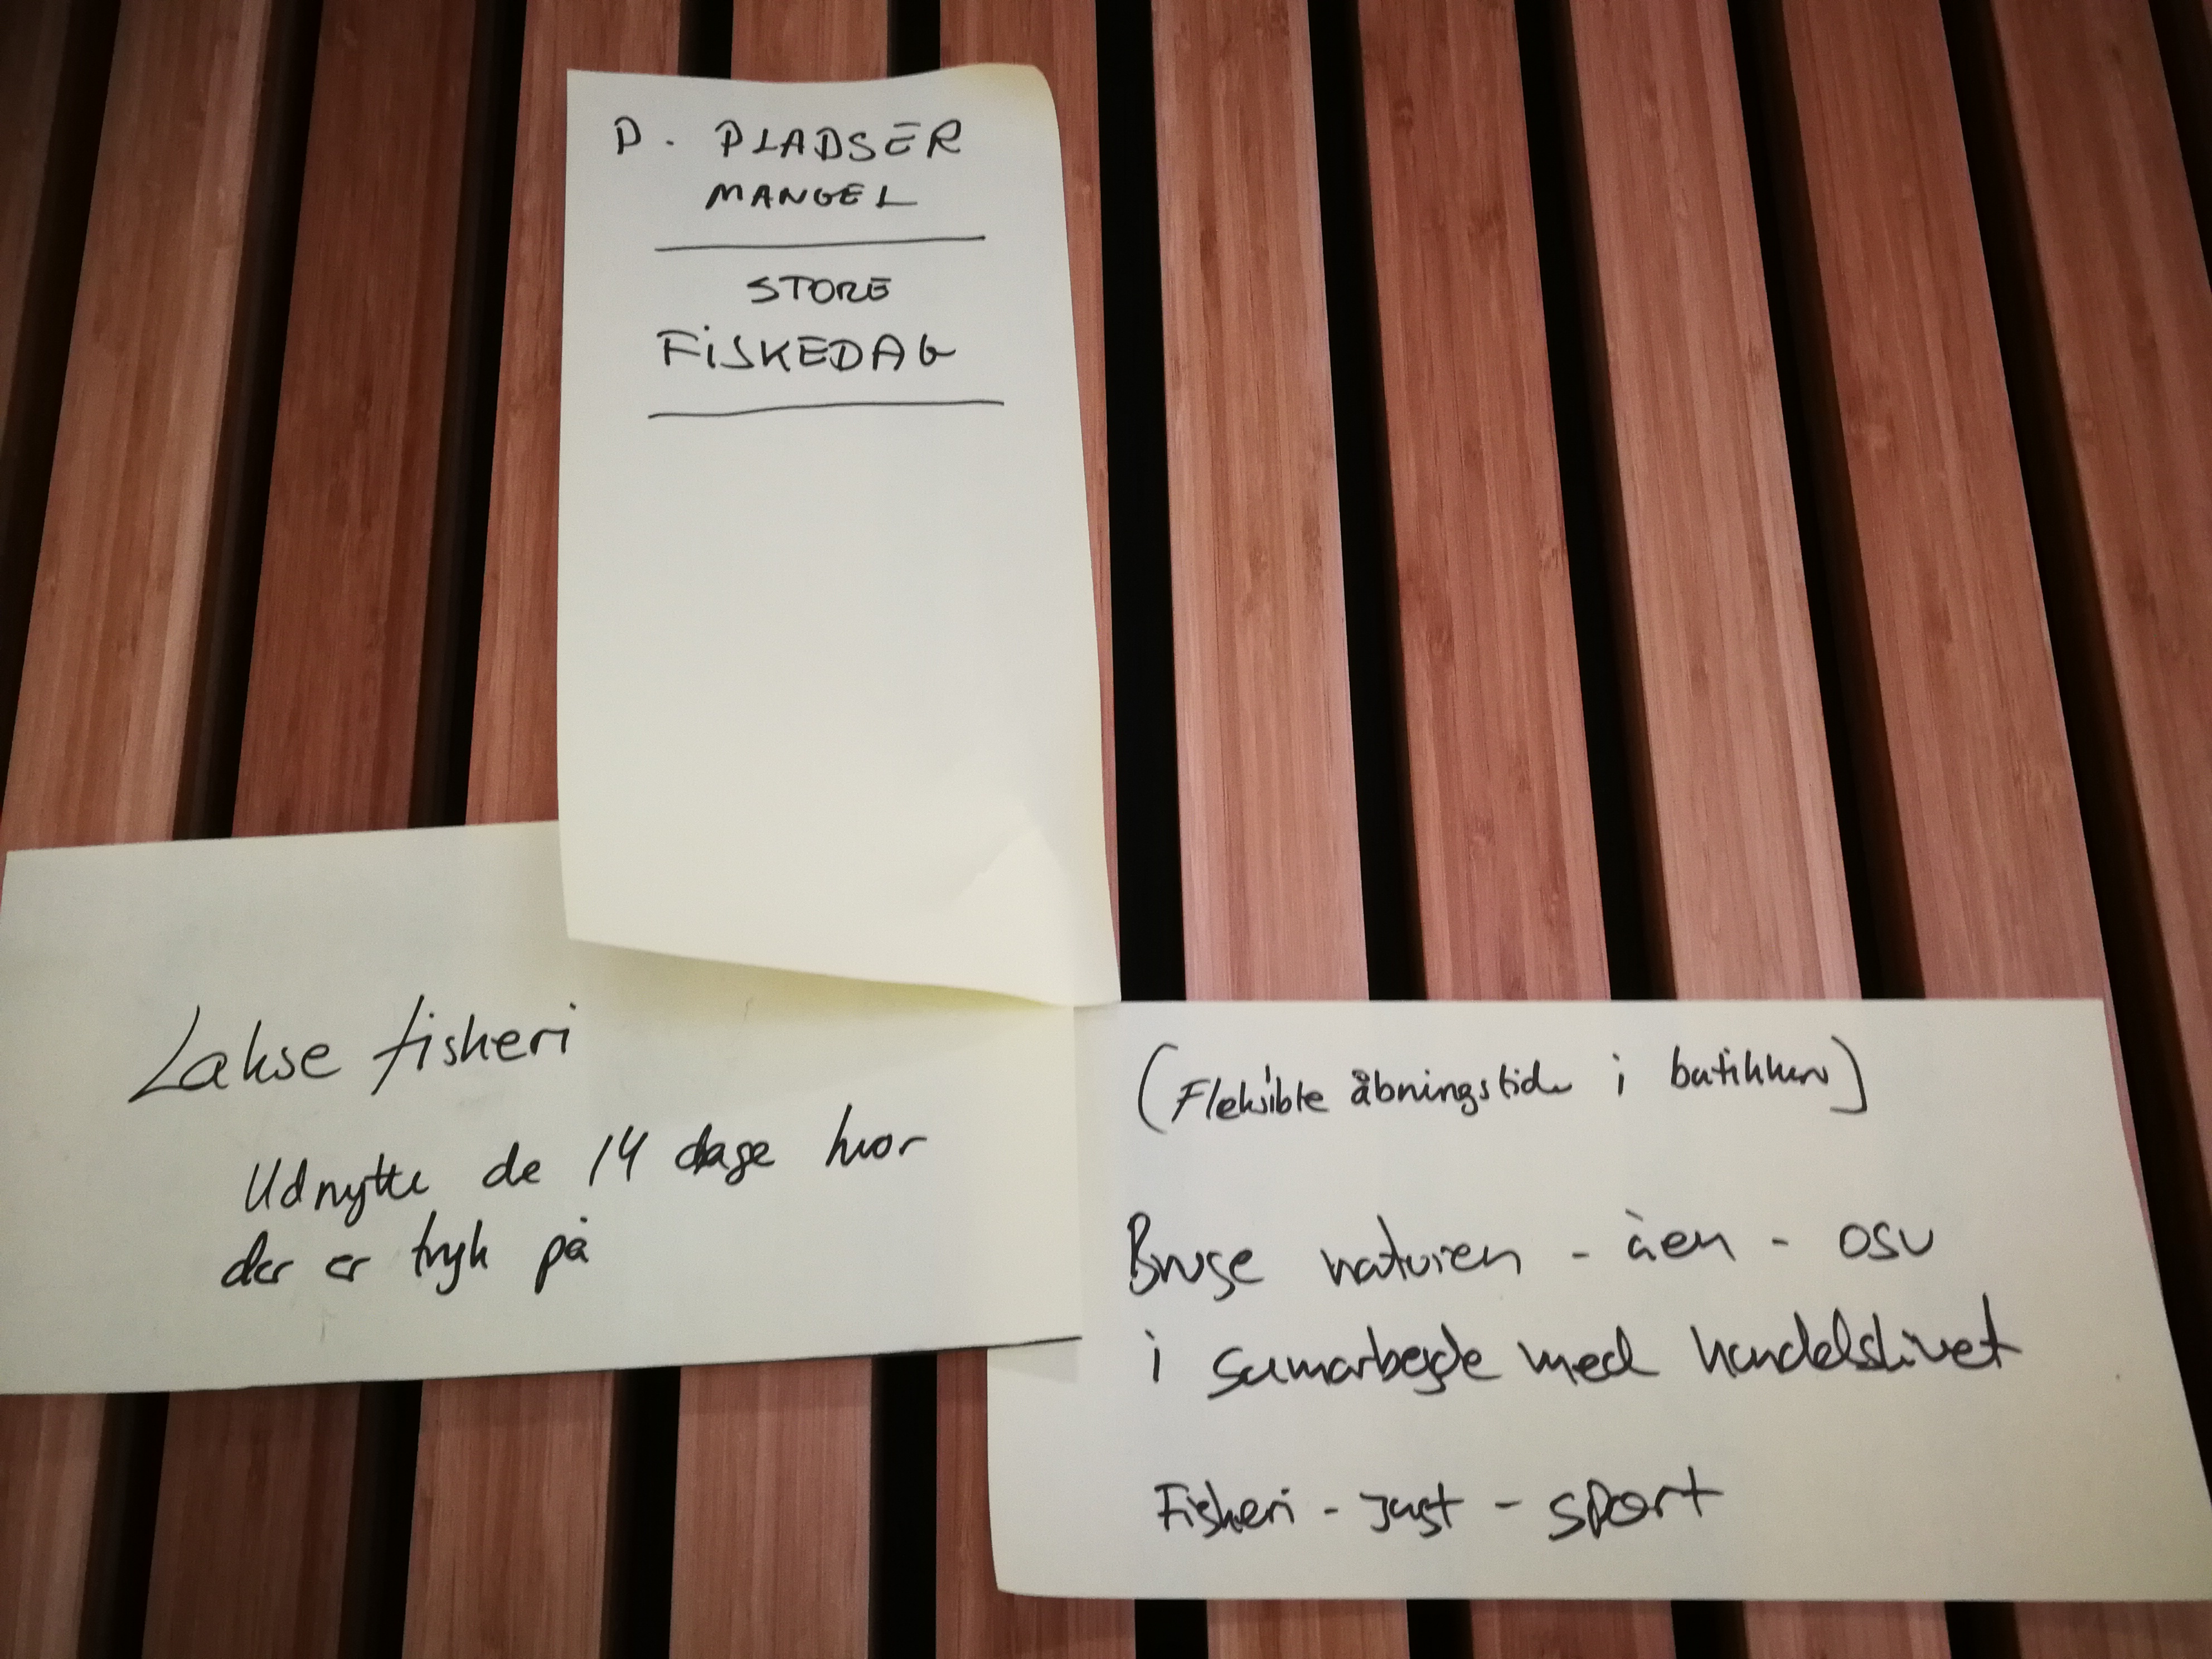 P. PLADSER
MANGEL
STORE
FISKEDAG
Lakse fiskeri
Udnytte de 14 dage hvor
der er tryk på
(Fleksible åbningstider i butikken)
Bruge naturen - åen - osv
i samarbejde med handelslivet
Fiskeri - jagt - sport